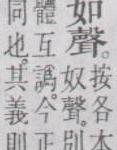 如聲。按各本
體互譌。今正。奴聲。別
同也。其義則